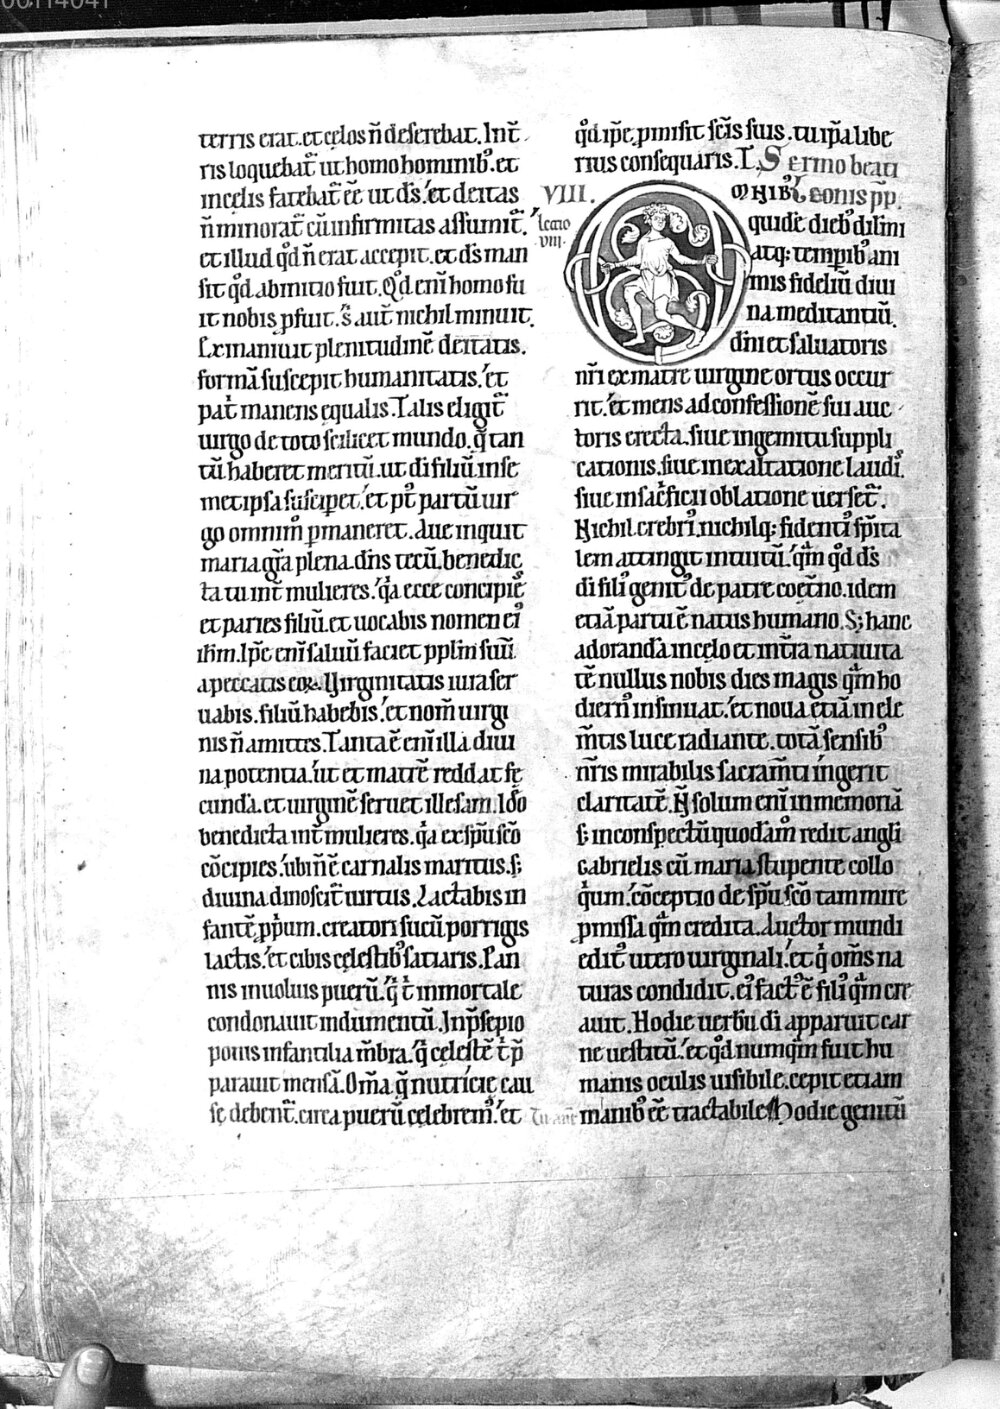 00114041
terris erat. et cęlos n̄ deserebat. In t̄r
ris loquebat᷑ ut homo hominib᷒. et
in cęlis fatebat᷑ ēē ut d̄s. et deitas
n̄ minorat᷑ cū infirmitas assumit᷑.
et illud qd̄ n̄ erat accepit. et d̄s man
sit qd̄ ab initio fuit. Qd̄ enī homo fu
it nobis ꝓfuit. s̄ aut̄ nichil minuit.
Exinaniuit plenitudinē deitatis.
formā suscepit humanitatis. et
pat̄ manens equalis. Talis eligit᷑
uirgo de toto scilicet mundo. q̄ tan
tū haberet meritū. ut di filiū in se
met ipsa susciperet. et p᷒t partū uir
go omnim᷒ ꝑmaneret. Aue inquit
maria gr̄a plena. dn̄s tecū. benedic
ta tu int̄ mulieres. q̇a ecce concipies
et paries filiū. et uocabis nomen ei᷒
ih̄m. Ip̄e enī saluū faciet ppl̄m suū
a peccatis eoꝝ. Virginitatis iura ser
uabis. filiū habebis. et nom̄ uirgi
nis n̄ amittes. Tanta ē enī illa diui
na potentia. ut et matrē reddat fę
cundā. et uirginē seruet illesam. Ido
benedicta int̄ mulieres. q̇a ex sp̄u sc̄o
cōcipies. ubi n̄ ē carnalis maritus. s;
diuina dinoscit᷑ uirtus. Lactabis in
fantē ꝓprium. creatori sucū porrigis
lactis. et cibis cęlestib᷒ satiaris. Pan
nis inuoluis puerū. q̇ t̄ immortale
condonauit indumentū. In p̄sepio
ponis infantilia m̄bra. q̇ cęlestē t̄ p̄
parauit mensā. Om̄a q̄ nutricię cau
sę debent᷑. circa puerū celebrem᷒. et
qd̄ ip̄e ꝓmisit sc̄is suis. tu ip̄a libe
rius consequaris. T. Sermo beati
VIII. OMNIB᷒ Leonis pp̄.
lectio
VIII.
quidē dieb᷒ dilm̄i
atq; temporib᷒ ani
mis fideliū diui
na meditantiū.
dn̄i et saluatoris
nr̄i ex matre uirgine ortus occur
rit. et mens ad confessionē sui auc
toris erecta. siue in gemitu suppli
cationis. siue in exaltatione laudis.
siue in sac̄ficii oblatione uerset᷑.
Nichil crebri᷒. nichilq; fidenti᷒ sp̄ita
lem attingit intuitū. qm̄ qd̄ d̄s
di fili᷒ genit᷒ de patre coet̄no. idem
etiā partu ē natus humano. S; hanc
adorandā in cęlo et in t̄ra natiuita
tē nullus nobis dies magis qm̄ ho
diern᷒ insinuat. et noua etiā in ele
m̄tis luce radiante. totā sensib᷒
nr̄is mirabilis sacram̄ti ingerit
claritatē. N̄ solum enī in memoriā
s; in conspectū quodam᷒ redit angli
Gabrielis cū maria stupente collo
q̇um. cōceptio de sp̄u sc̄o tam mire
ꝓmissa qm̄ credita. Auctor mundi
edit᷒ utero uirginali. et q̇ om̄s na
turas condidit. ei᷒ fact᷒ ē fili᷒ qm̄ cre
auit. Hodie uerbū di apparuit car
ne uestitū. et qd̄ numqm̄ fuit hu
manis oculis uisibile. cepit etiam
Tu aut̄ manib᷒ ēē tractabile. Hodie genitū